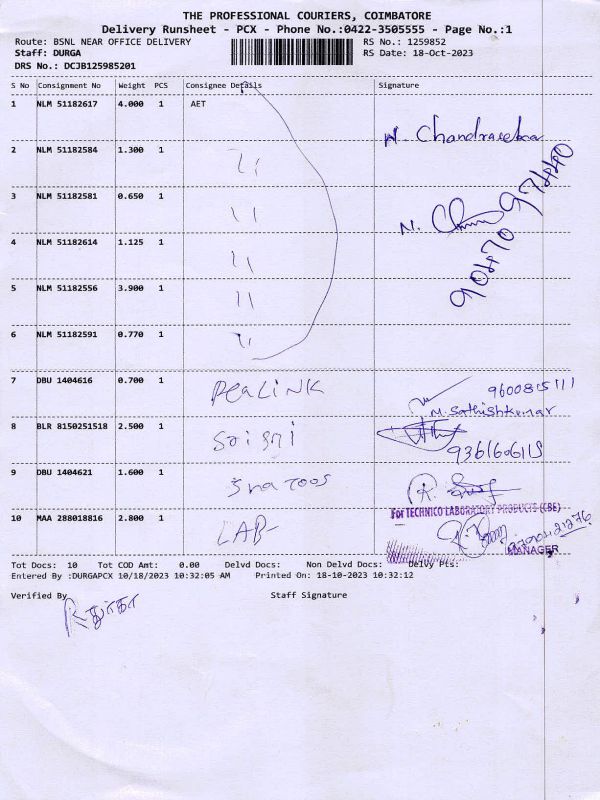 THE PROFESSIONAL COURIERS, COIMBATORE
Delivery Runsheet - PCX - Phone No.:0422-3505555 - Page No.:1
Route: BSNL NEAR OFFICE DELIVERY RS No.: 1259852
Staff: DURGA RS Date: 18-Oct-2023
DRS No.: DCJB125985201
S No Consignment No Weight PCS Consignee Details Signature
1 NLM 51182617 4.000 1 AET
N. Chandrasekar
2 NLM 51182584 1.300 1 "
3 NLM 51182581 0.650 1 "
N.
90470 97440
4 NLM 51182614 1.125 1 "
5 NLM 51182556 3.900 1 "
6 NLM 51182591 0.770 1 "
7 DBU 1404616 0.700 1 PeaLINK 9600815111
M. Sathishkumar
8 BLR 8150251518 2.500 1
9361606115
9 DBU 1404621 1.600 1
For TECHNICO LABORATORY PRODUCTS (CBE)
10 MAA 288018816 2.800 1 LAB-
MANAGER
Tot Docs: 10 Tot COD Amt: 0.00 Delvd Docs: Non Delvd Docs: Delvy Pts:
Entered By :DURGAPCX 10/18/2023 10:32:05 AM Printed On: 18-10-2023 10:32:12
Verified By Staff Signature